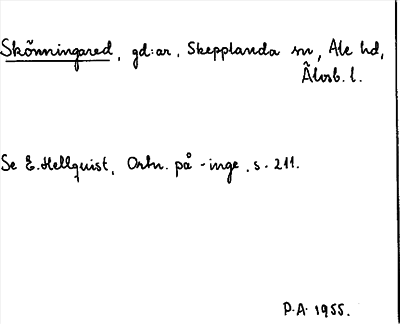 Skönningared, gd:ar, Skepplanda sn, Ale hd,
Älvsb. l.
Se E. Hellquist, Ortn. på -inge, s. 211.
P.A. 1955.